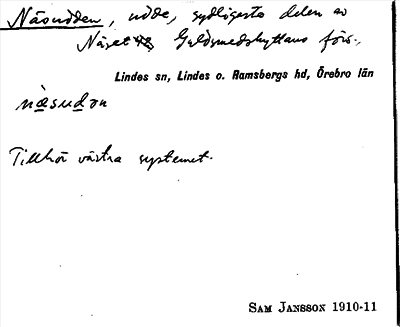 Näsudden, udde, sydligaste delen av
Näset, Guldsmedshyttans förs.,
Lindes sn, Lindes o. Ramsbergs hd, Örebro län
nàsudən
Tillhör västra systemet.
SAM JANSSON 1910-11